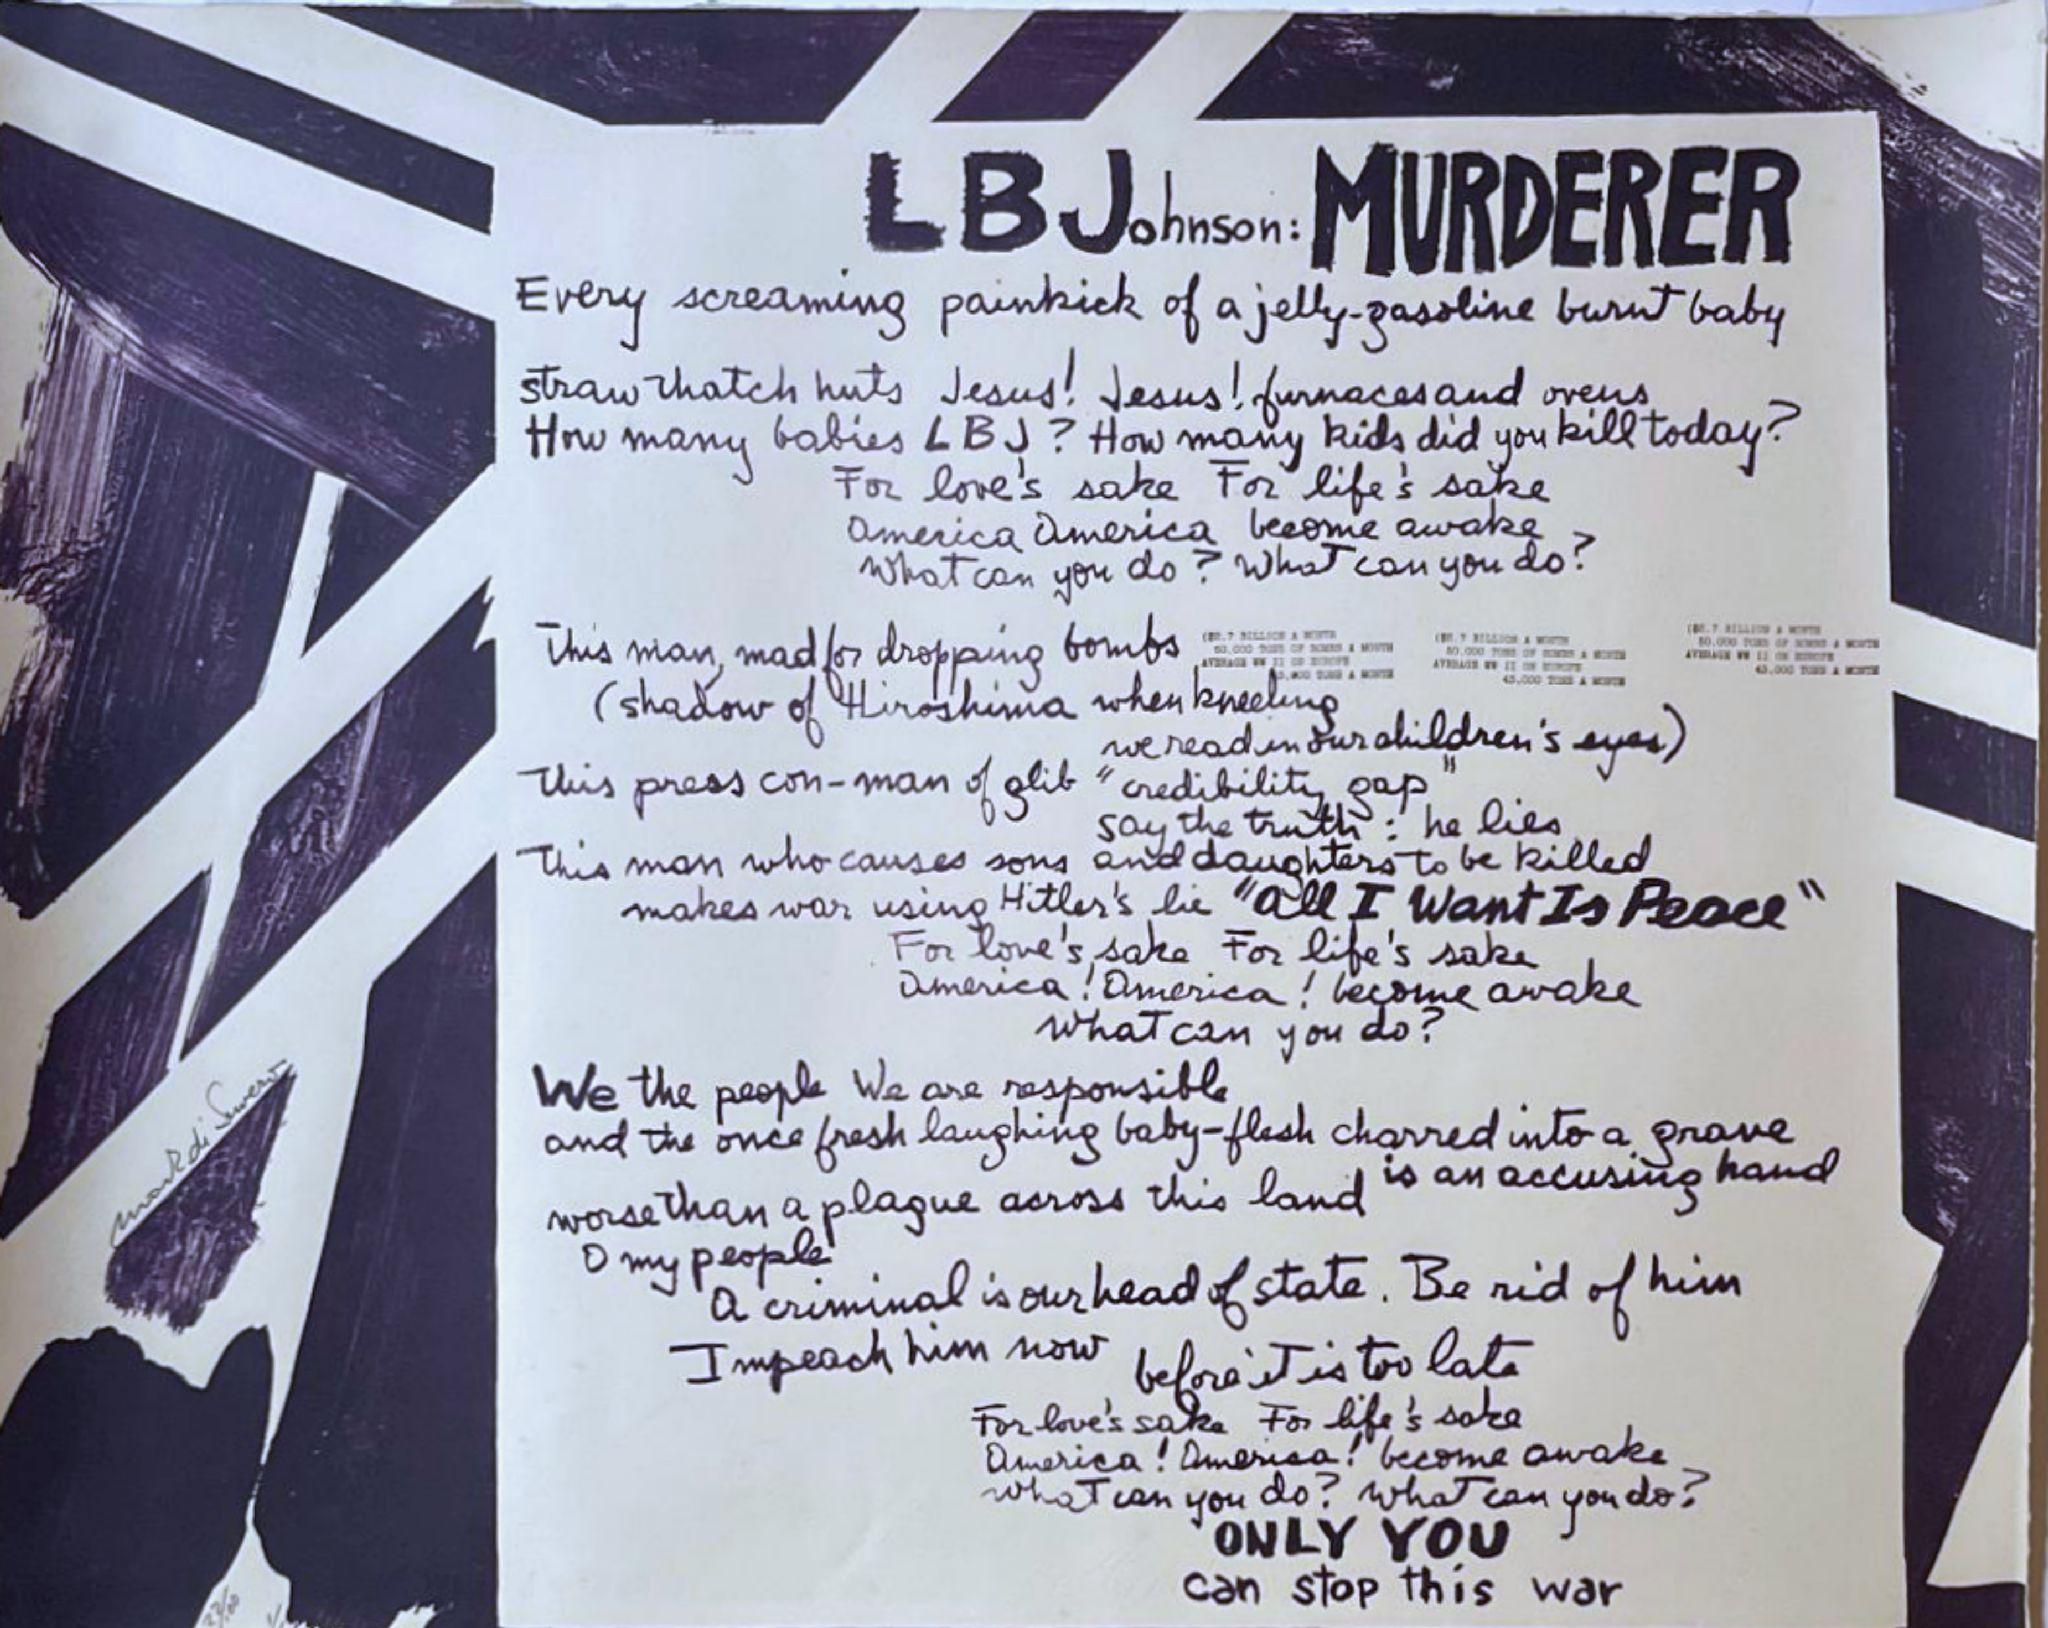 LBJohnson: MURDERER
Every screaming painkick of a jelly-gasoline burnt baby
straw thatch huts Jesus! Jesus! furnaces and ovens
How many babies LBJ? How many kids did you kill today?
For love's sake For life's sake
America America become awake
What can you do? What can you do?
This man, mad for dropping bombs
($2.7 BILLION A MONTH
50.000 TONS OF BOMBS A MONTH
AVERAGE WW II ON EUROPE
43.000 TONS A MONTH
($2.7 BILLION A MONTH
50.000 TONS OF BOMBS A MONTH
AVERAGE WW II ON EUROPE
43.000 TONS A MONTH
($2.7 BILLION A MONTH
50.000 TONS OF BOMBS A MONTH
AVERAGE WW II ON EUROPE
43.000 TONS A MONTH
(shadow of Hiroshima when kneeling
we read in our children's eyes)
This press con-man of glib "credibility gap"
say the truth: he lies
This man who causes sons and daughters to be killed
makes war using Hitler's lie "All I Want Is Peace"
For love's sake For life's sake
America! America! become awake
What can you do?
We the people We are responsible
and the once fresh laughing baby-flesh charred into a grave
is an accusing hand
worse than a plague across this land
O my people
A criminal is our head of state. Be rid of him
Impeach him now before it is too late
For love's sake For life's sake
America! America! become awake
What can you do? What can you do?
ONLY YOU
can stop this war
Mark di Suvero